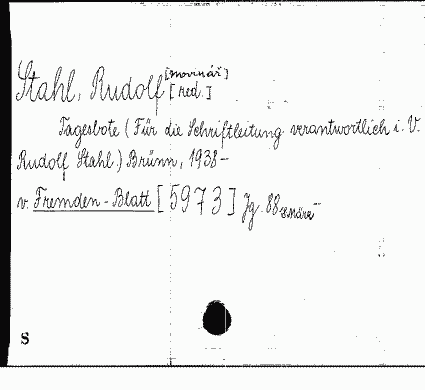 Stahl, Rudolf [novinář]
[red.]
Tagesbote (Für die Schriftleitung verantwortlich i. V.
Rudolf Stahl) Brünn, 1938-
v. Fremden-Blatt [5973] Jg. 88
S